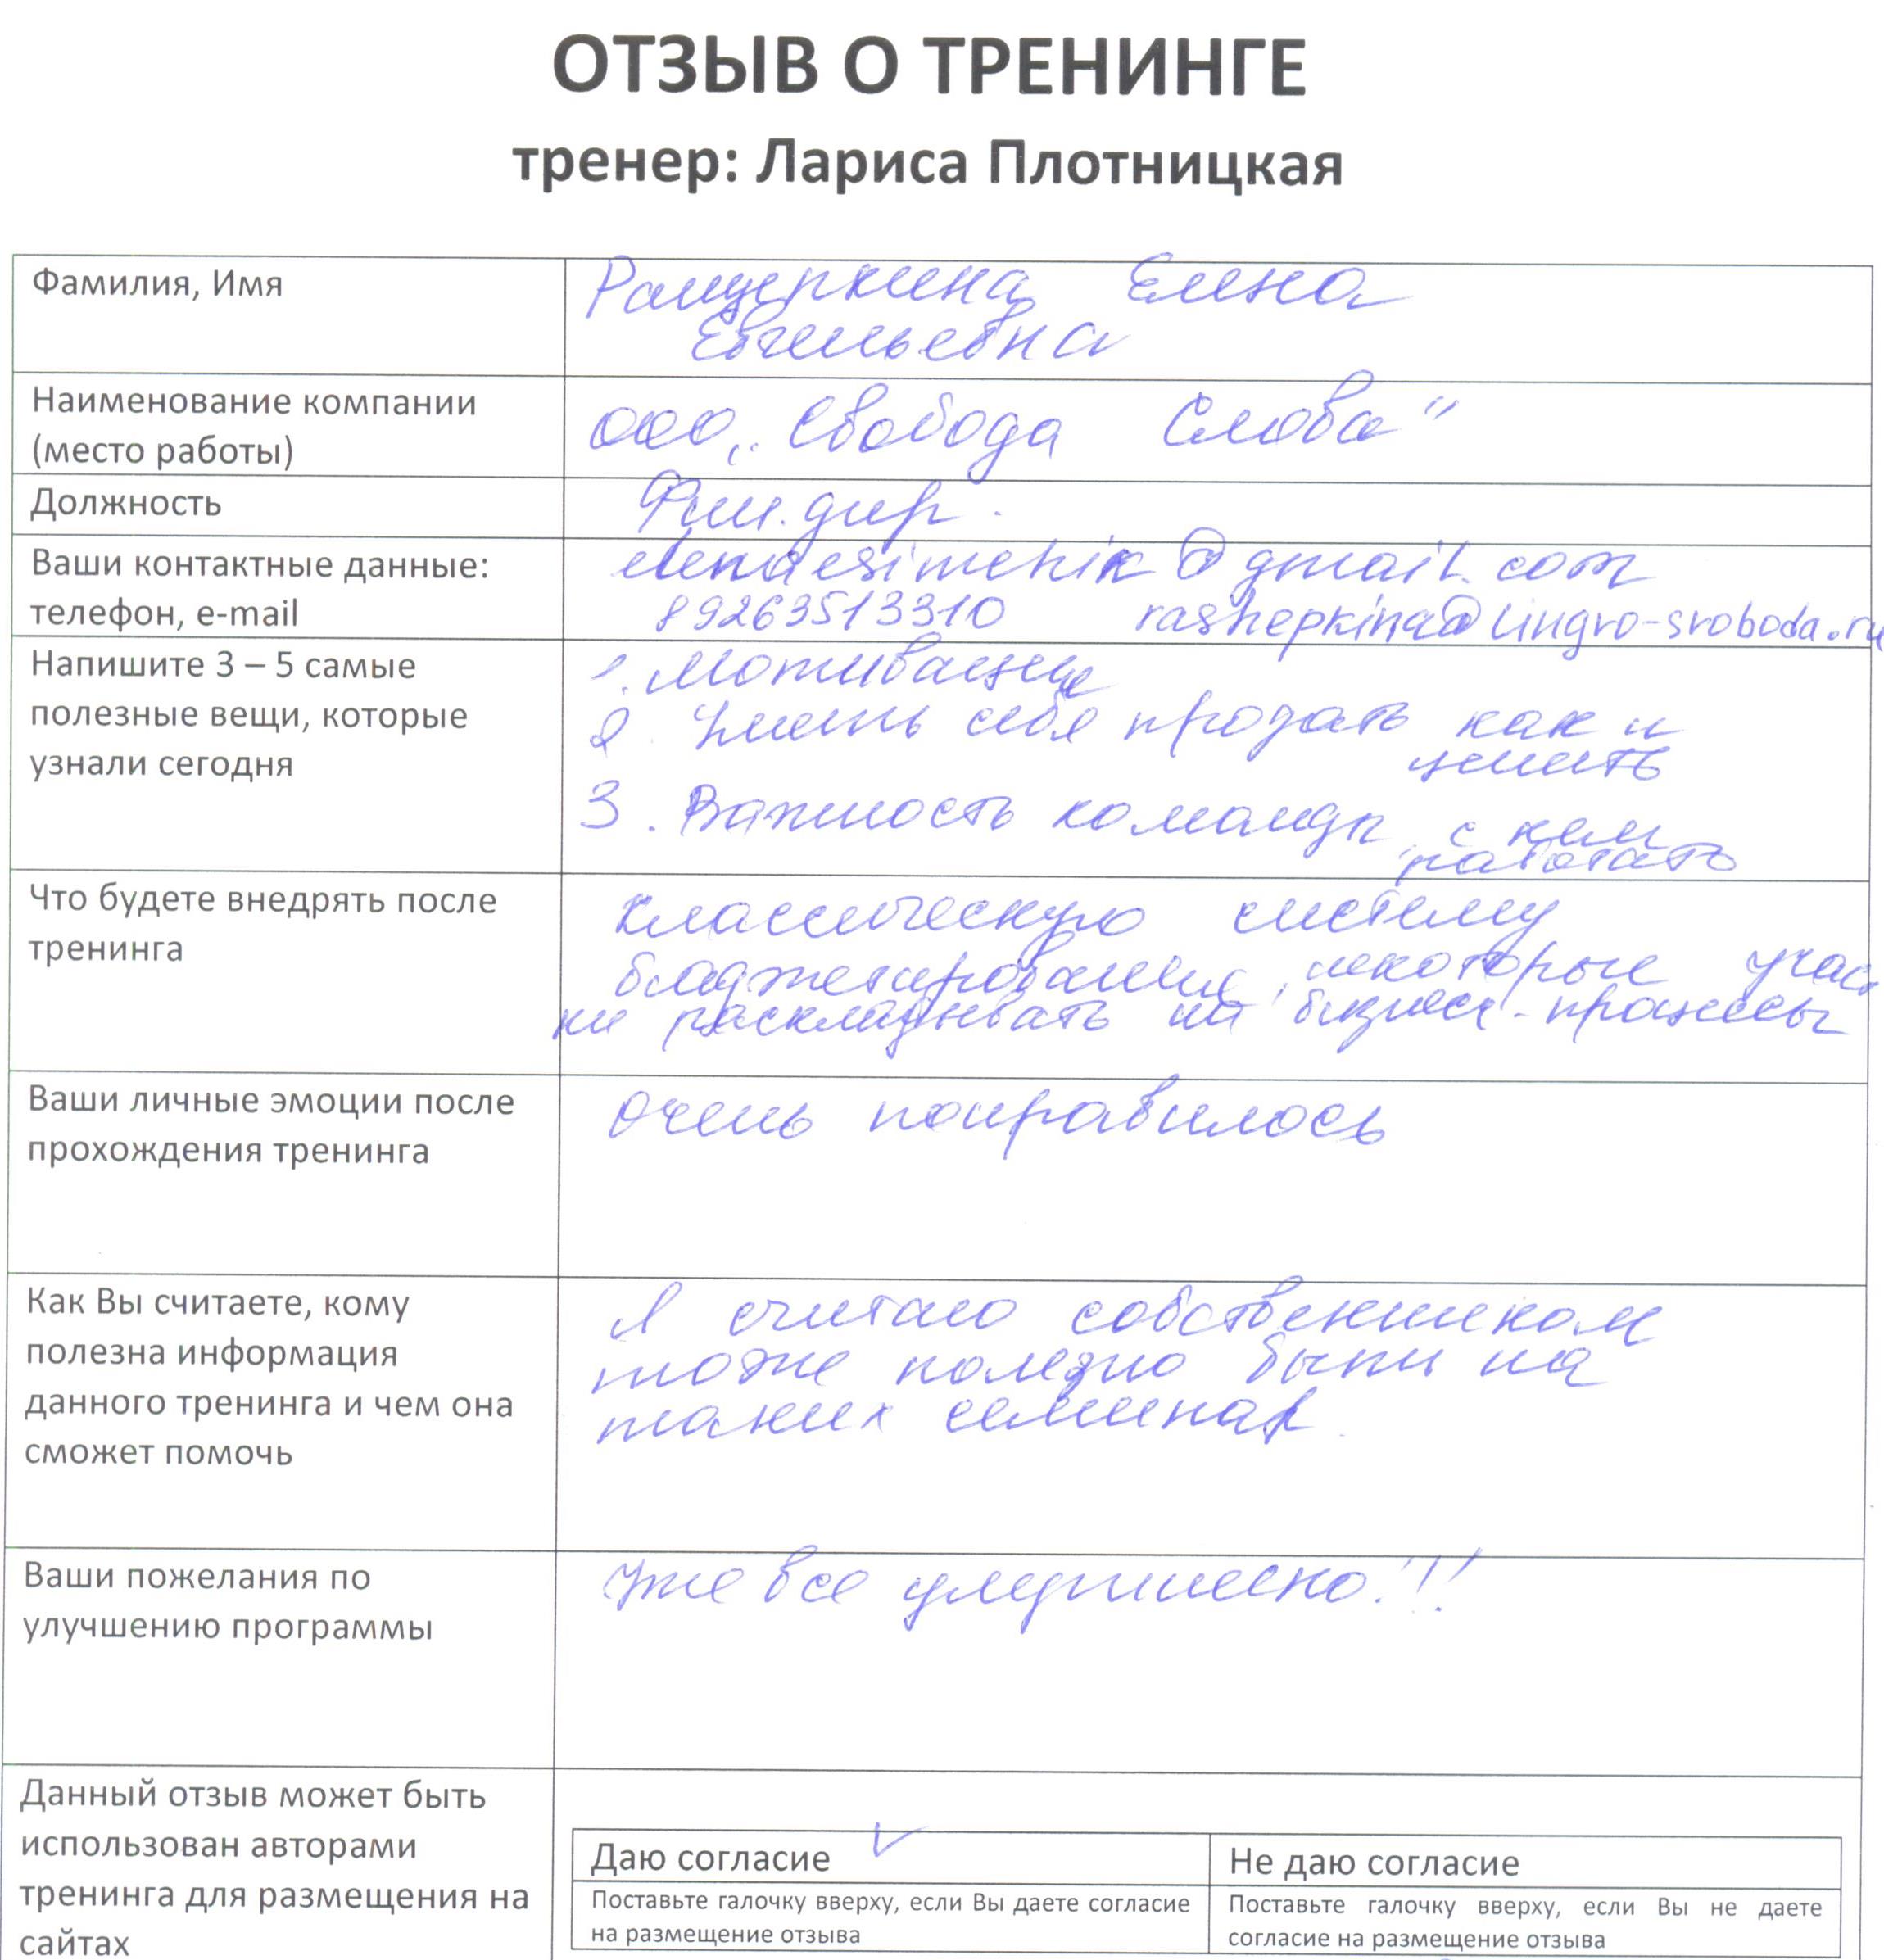 ОТЗЫВ О ТРЕНИНГЕ
тренер: Лариса Плотницкая
Фамилия, Имя
Ращепкина Елена
Евгеньевна
Наименование компании
(место работы)
ООО „Свобода Слова"
Должность
Фин. дир.
Ваши контактные данные:
телефон, e-mail
elenaesimchik@gmail.com
89263513310 rashepkina@lingro-svoboda.ru
Напишите 3 – 5 самые
полезные вещи, которые
узнали сегодня
1. Мотивация
2 Уметь себя продать как и
ценить
3. Важность команды, с кем
работать
Что будете внедрять после
тренинга
Классическую систему
бюджетирования, некоторые учас
ки раскладывать на бизнес-процессы
Ваши личные эмоции после
прохождения тренинга
Очень понравилось
Как Вы считаете, кому
полезна информация
данного тренинга и чем она
сможет помочь
Я считаю собственникам
тоже полезно быть на
таких семинар
Ваши пожелания по
улучшению программы
Уже все улучшено!!!
Данный отзыв может быть
использован авторами
тренинга для размещения на
сайтах
Даю согласие
Поставьте галочку вверху, если Вы даете согласие
на размещение отзыва
Не даю согласие
Поставьте галочку вверху, если Вы не даете
согласие на размещение отзыва